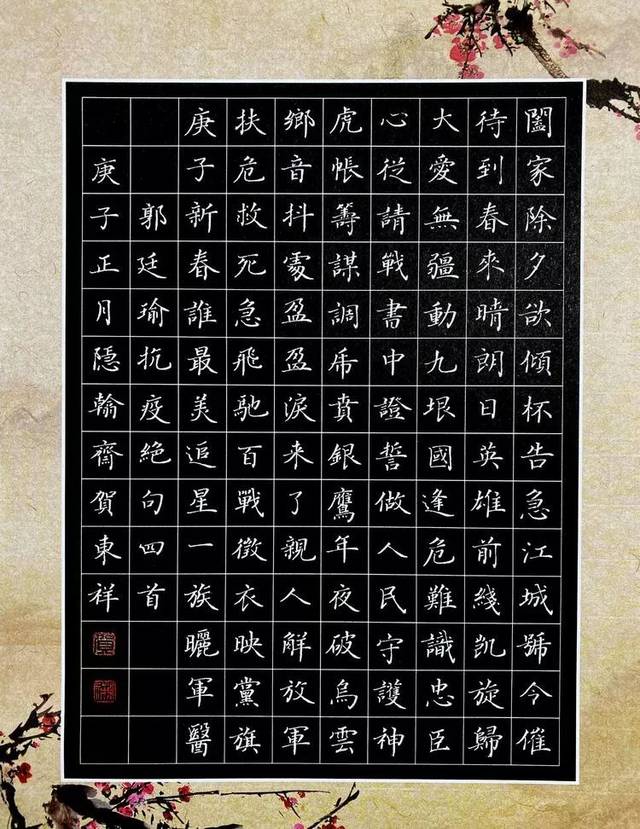 闔家除夕欲傾杯告急江城號令催
待到春來晴朗日英雄前綫凱旋歸
大愛無疆動九垠國逢危難識忠臣
心從請戰書中證誓做人民守護神
虎帳籌謀調乕賁銀鷹年夜破烏雲
鄉音抖處盈盈淚來了親人解放軍
扶危救死急飛馳百戰徵衣映黨旗
庚子新春誰最美追星一族曬軍醫
郭廷瑜抗疫絕句四首
庚子正月隱翰齋賀東祥